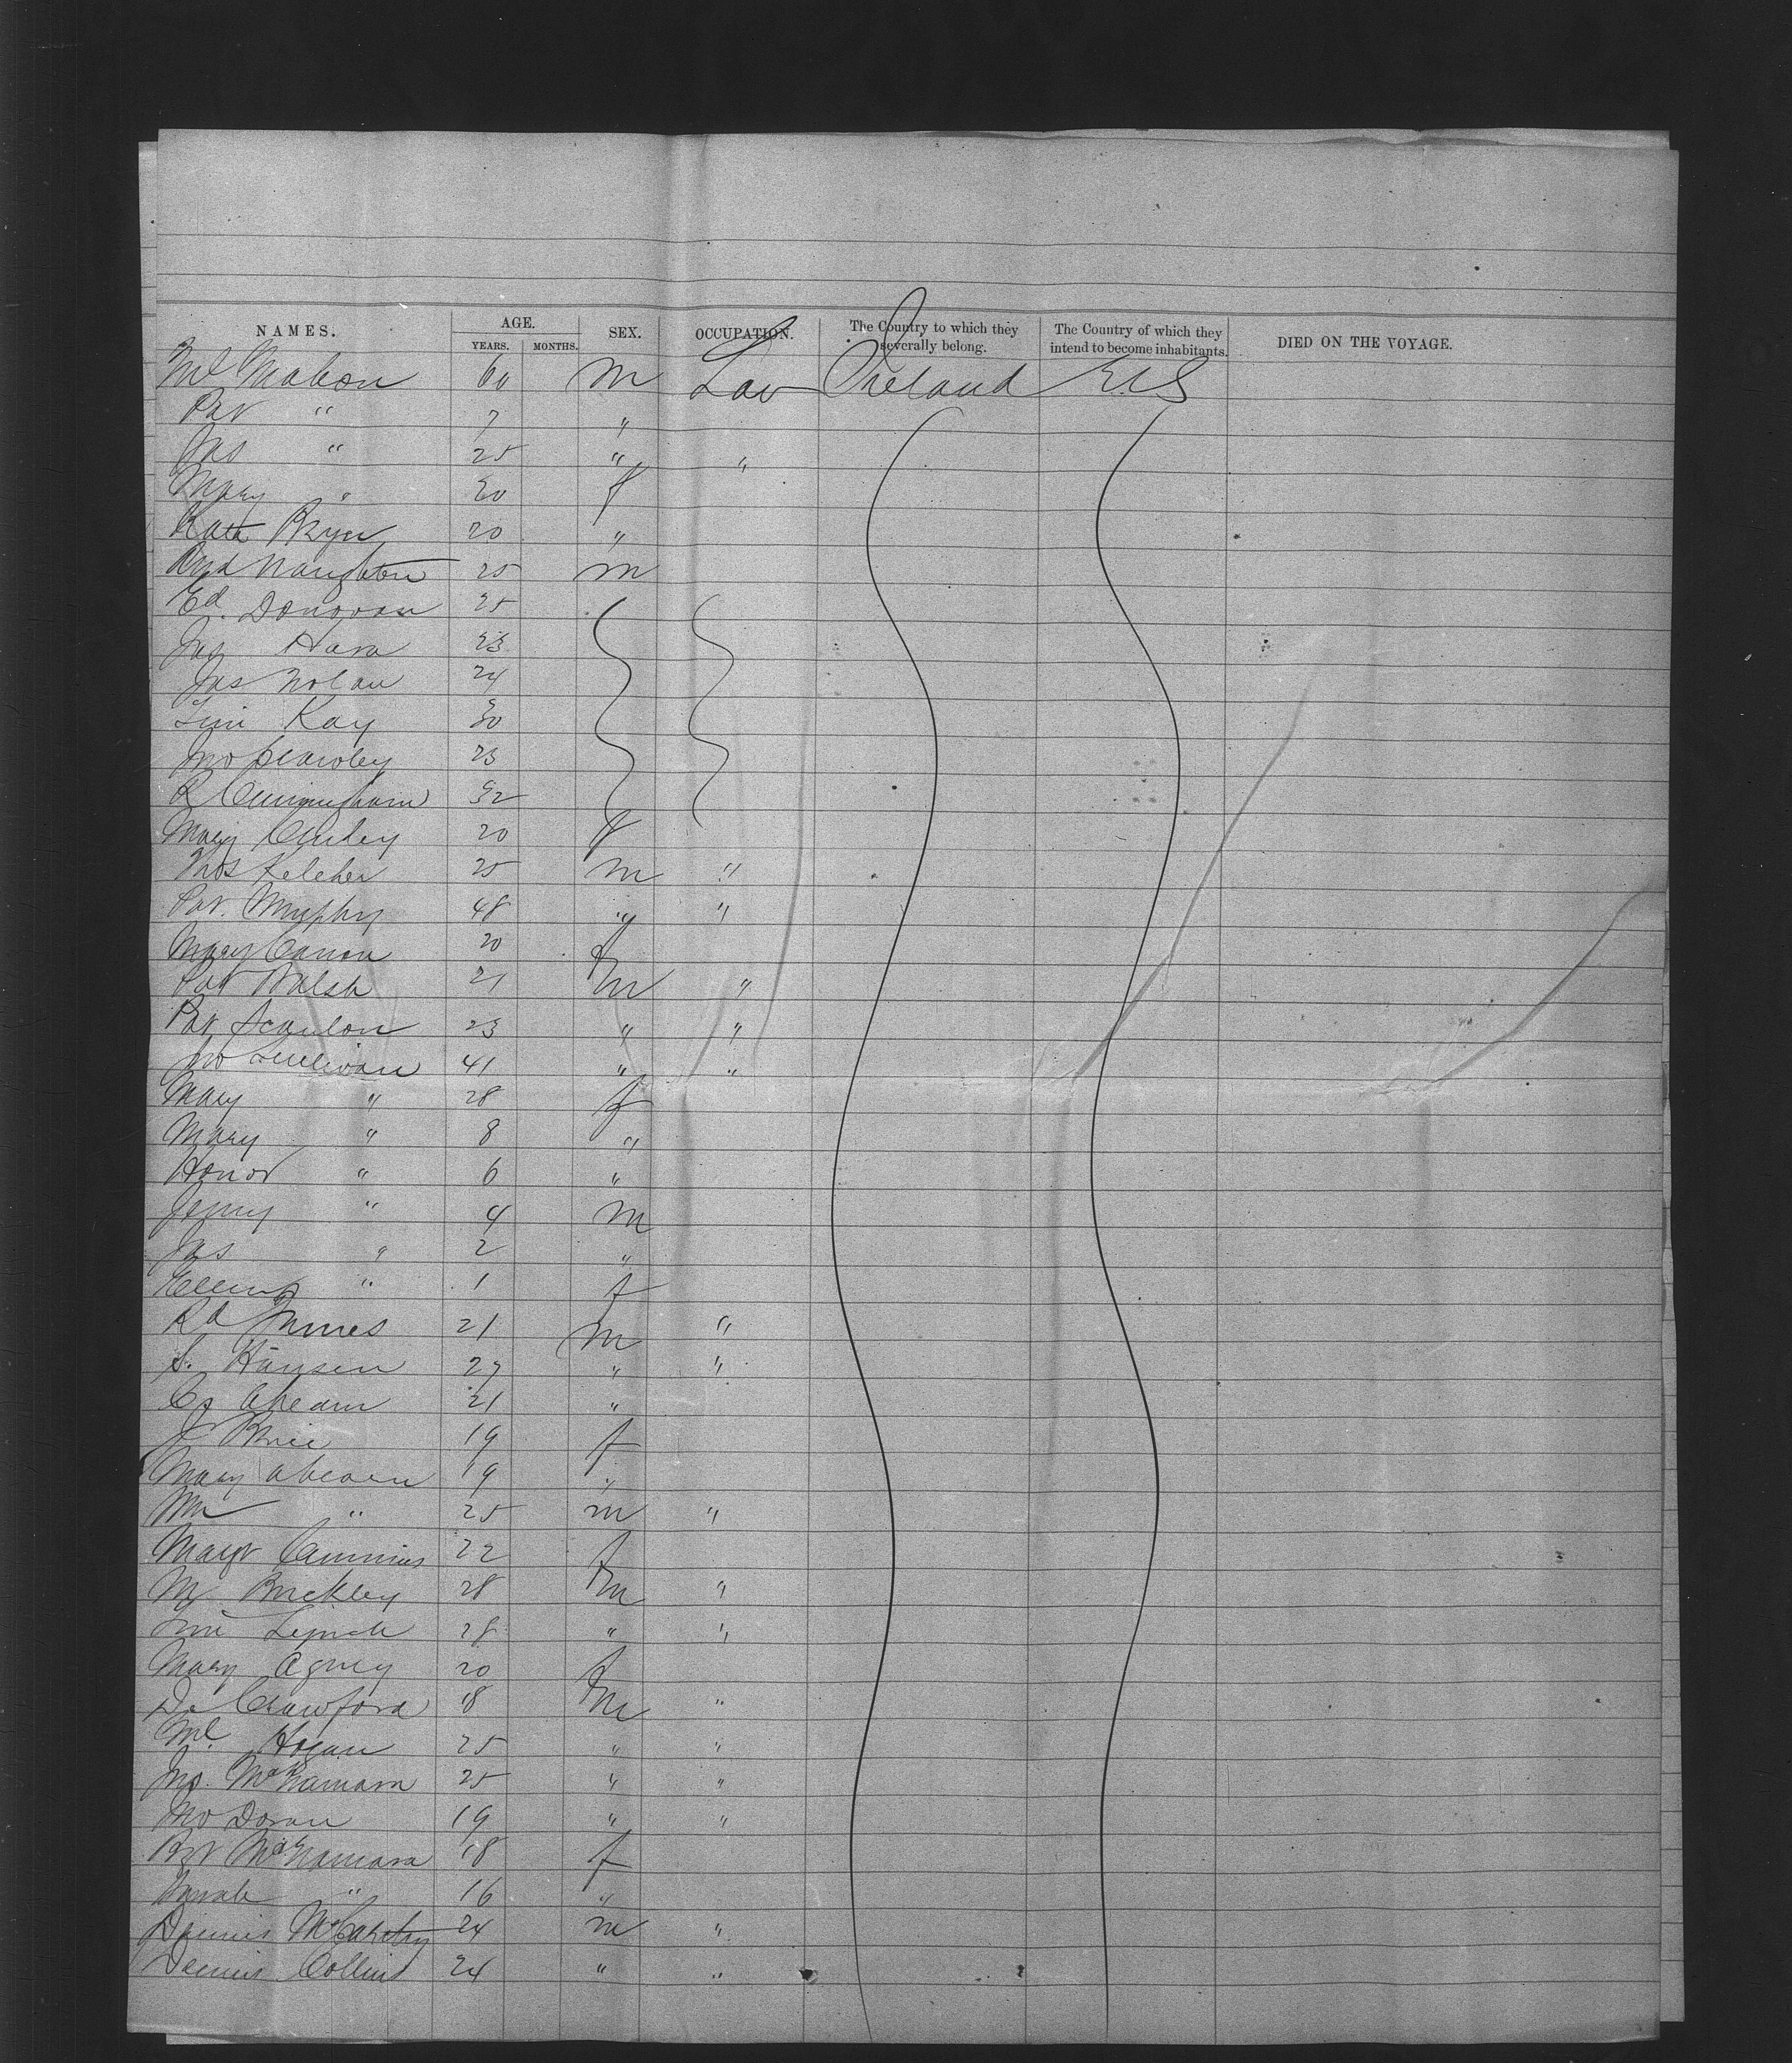 NAMES. AGE. SEX. OCCUPATION. The Country to which they severally belong. The Country of which they intend to become inhabitants. DIED ON THE VOYAGE.
YEARS. MONTHS.
Ml Mahon 60 m Lab Ireland U S
Pat " 7 "
Jas " 25 " "
Mary " 20 f
Kate 20 "
Naughton 25 m
Ed. Donovan 25
Jas Hara 23
Jas Nolan 24
Tim Kay 30
Jno 23
R Cunningham 32
Mary Curley 20 f
Thos Keleher 25 m "
Pat. Murphy 48 " "
Mary Canon 20 f
Pat Walsh 21 m "
Pat Scanlon 23 " "
Jno Sullivan 41 " "
Mary " 28 f
Mary " 8 "
Honor " 6 "
Jerry " 4 m
Jas " 2 "
Ellen " 1 f
Rd 21 m "
S. Hansen 27 " "
Ahearn 21 "
J 19 f
Mary Ahearn 19 "
Wm " 25 m "
Margt Cummins 22 f
M Buckley 28 m "
Tim Lynch 28 " "
Mary Agney 20 f
Crawford 18 m "
Ml Hogan 25 " "
Jno. McNamara 25 " "
Jno Doran 19 " "
Bgt McNamara 18 f
Sarah " 16 "
Dennis McCarthy 24 m "
Dennis Collins 24 " "